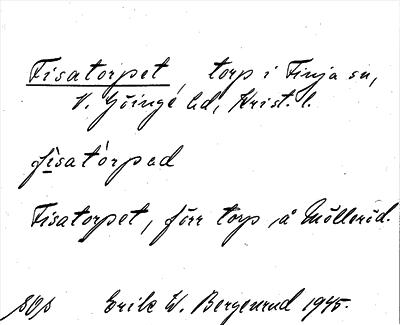 Fisatorpet, torp i Finja sn,
V. Göinge hd, Krist. l.
fìsatórpad
Fisatorpet, förr torp å Mölleröd.
Erik W. Bergenrud 1945.